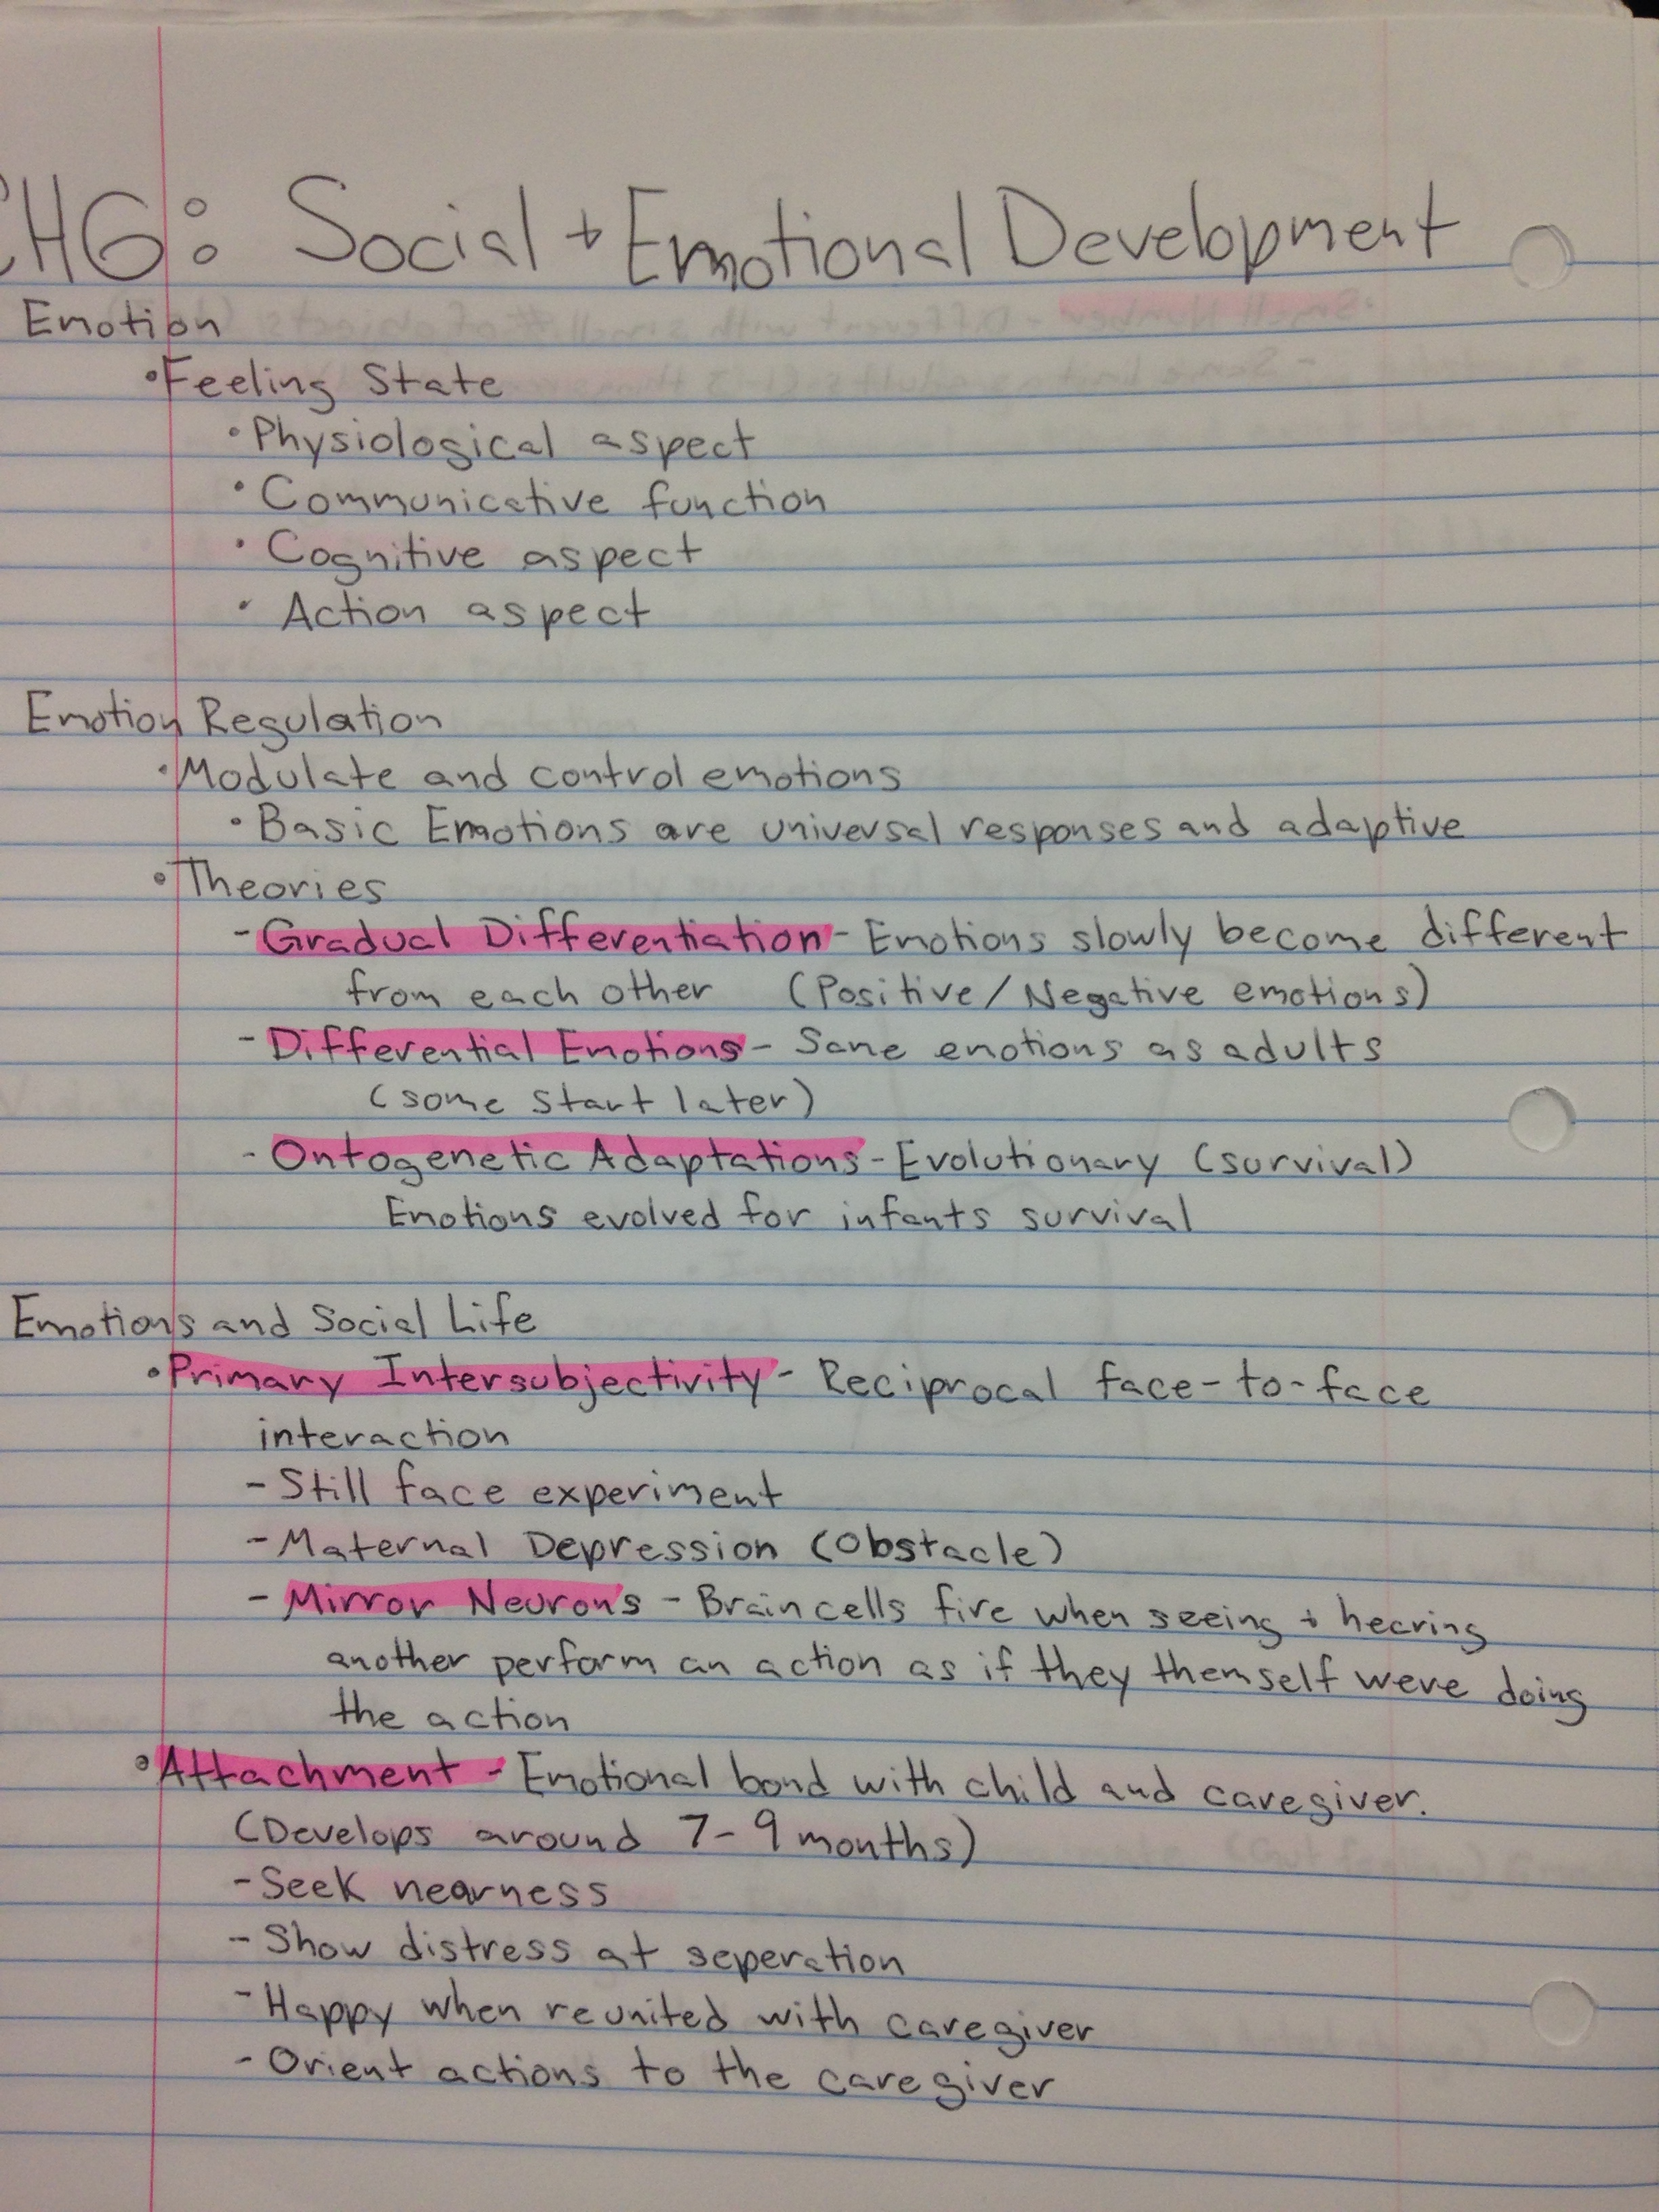 CH6: Social + Emotional Development
Emotion
•Feeling State
•Physiological aspect
•Communicative function
•Cognitive aspect
•Action aspect
Emotion Regulation
•Modulate and control emotions
•Basic Emotions are universal responses and adaptive
•Theories
-Gradual Differentiation- Emotions slowly become different
from each other (Positive/Negative emotions)
-Differential Emotions- Same emotions as adults
(some start later)
-Ontogenetic Adaptations-Evolutionary (survival)
Emotions evolved for infants survival
Emotions and Social Life
•Primary Intersubjectivity- Reciprocal face-to-face
interaction
-Still face experiment
-Maternal Depression (Obstacle)
-Mirror Neurons -Brain cells fire when seeing + hearing
another perform an action as if they themself were doing
the action
•Attachment -Emotional bond with child and caregiver.
(Develops around 7-9 months)
-Seek nearness
-Show distress at seperation
-Happy when reunited with caregiver
-Orient actions to the caregiver